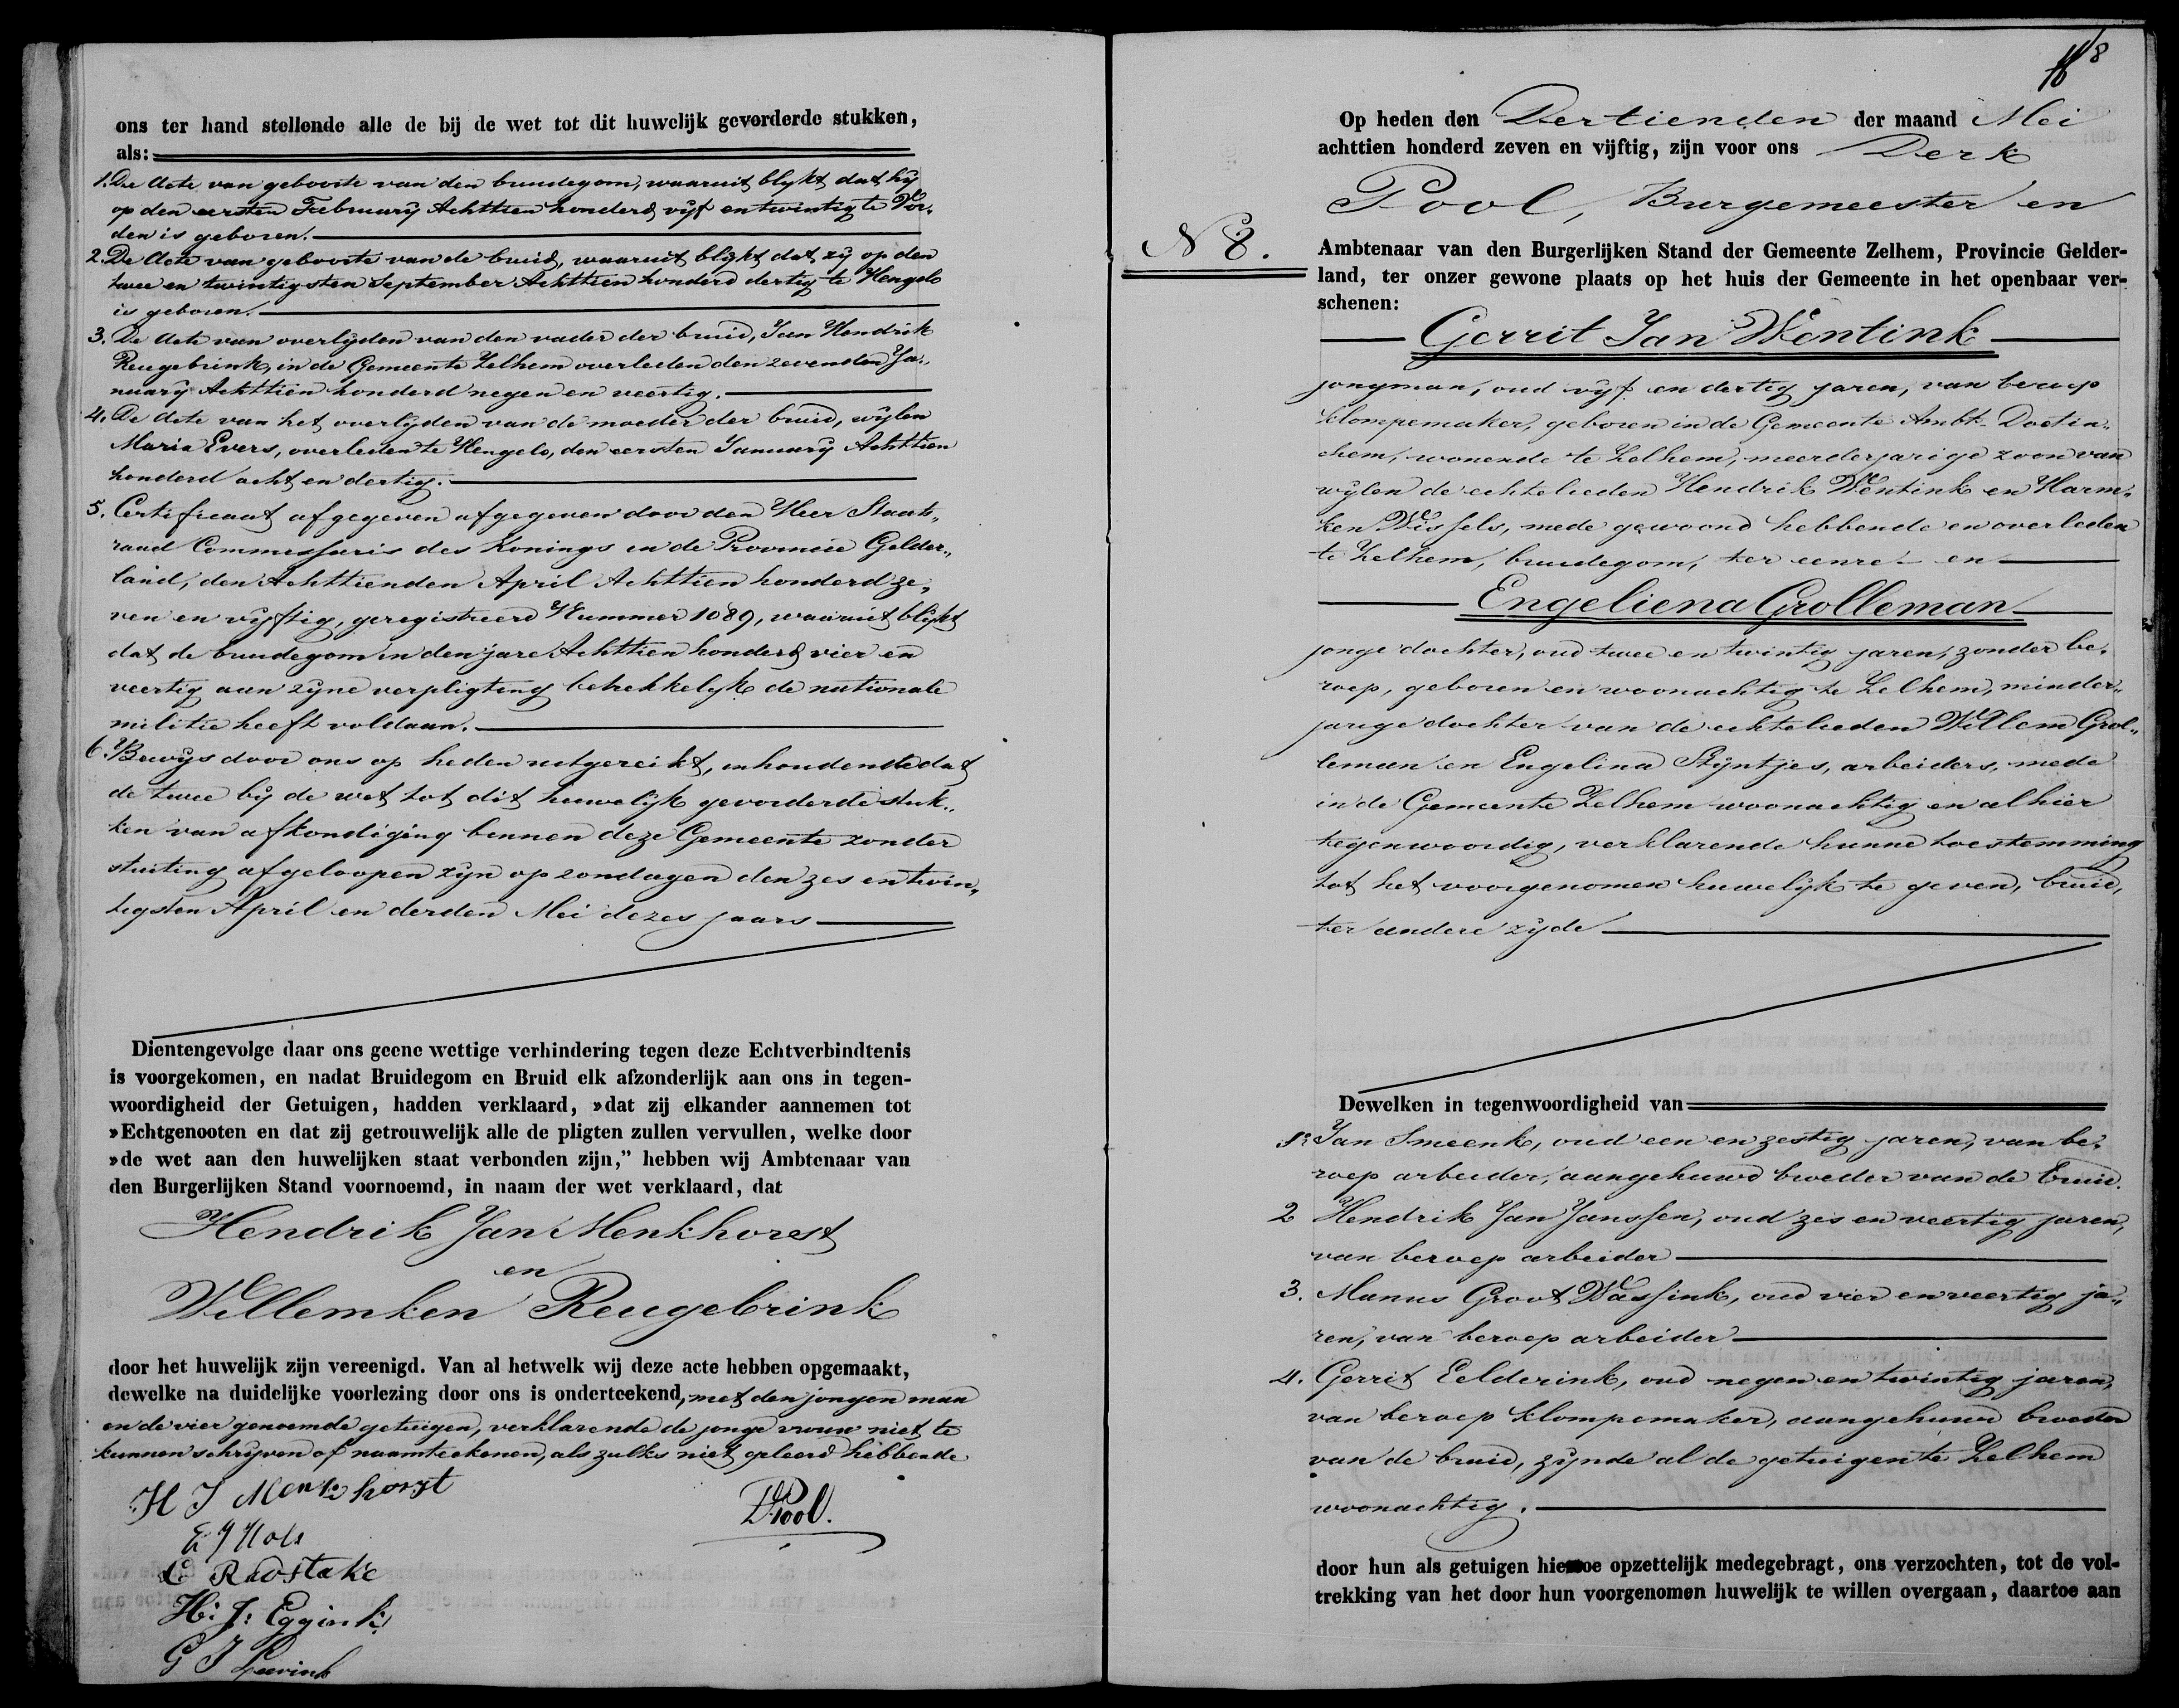 ons ter hand stellende alle de bij de wet tot dit huwelijk gevorderde stukken,
als:
1. De Acte van geboorte van den bruidegom, waaruit blykt dat hij
op den eersten February Achttien honderd vijf en twintig te Vor„
den is geboren.
2. De Acte van geboorte van de bruid, waaruit blijkt dat zij op den
twee en twintigsten September Achttien honderd dertig te Hengelo
is geboren.
3. De Acte van overlijden van den vader der bruid, Jan Hendrik
Reugebrink, in de Gemeente Zelhem overleden den zevenden Ja„
nuary Achttien honderd negen en veertig.
4. De Acte van het overlijden van de moeder der bruid, wijlen
Maria Evers, overleden te Hengelo, den eersten January Achttien
honderd acht en dertig.
5. Certificaat afgegeven afgegeven door den Heer Staats„
raad Commissaris des Konings in de Provincie Gelder„
land, den Achttienden April Achttien honderd ze„
ven en vijftig, geregistreerd Nummer 1089, waaruit blijkt
dat de bruidegom in den jare Achttien honderd vier en
veertig aan zijne verpligting betrekkelijk de nationale
militie heeft voldaan.
6. Bewijs door ons op heden uitgereikt, inhoudende dat
de twee bij de wet tot dit huwelijk gevorderde stuk„
ken van afkondiging binnen deze Gemeente zonder
stuiting afgeloopen zijn op zondagen den zes en twin„
tigsten April en derden Mei dezes jaars
Dientengevolge daar ons geene wettige verhindering tegen deze Echtverbindtenis
is voorgekomen, en nadat Bruidegom en Bruid elk afzonderlijk aan ons in tegen-
woordigheid der Getuigen, hadden verklaard, »dat zij elkander aannemen tot
»Echtgenooten en dat zij getrouwelijk alle de pligten zullen vervullen, welke door
»de wet aan den huwelijken staat verbonden zijn,” hebben wij Ambtenaar van
den Burgerlijken Stand voornoemd, in naam der wet verklaard, dat
Hendrik Jan Menkhorst
en
Willemken Reugebrink
door het huwelijk zijn vereenigd. Van al hetwelk wij deze acte hebben opgemaakt,
dewelke na duidelijke voorlezing door ons is onderteekend, met den jongen man
en de vier genoemde getuigen, verklarende de jonge vrouw niet te
kunnen schrijven of naamteekenen, als zulks niet geleerd hebbende
H J Menkhorst
DPool.
C Radstake
H: J: Eggink
G J
8
Op heden den Dertienden der maand Mei
achttien honderd zeven en vijftig, zijn voor ons Derk
Pool, Burgemeester en
N 8.
Ambtenaar van den Burgerlijken Stand der Gemeente Zelhem, Provincie Gelder-
land, ter onzer gewone plaats op het huis der Gemeente in het openbaar ver-
schenen:
Gerrit Jan Wentink
jongman, oud vijf en dertig jaren, van beroep
klompemaker, geboren in de Gemeente Ambt-Doetin„
chem, wonende te Zelhem, meerderjarige zoon van
wijlen de echtelieden Hendrik Wentink en Harm„
ken Wissels, mede gewoond hebbende en overleden
te Zelhem, bruidegom, ter eenre - en
Engeliena Grolleman
jonge dochter, oud twee en twintig jaren, zonder be„
roep, geboren en woonachtig te Zelhem, minder„
jarige dochter van de echtelieden Willem Grol„
leman en Engelina Stijntjes, arbeiders, mede
in de Gemeente Zelhem woonachtig en alhier
tegenwoordig, verklarende hunne toestemming
tot het voorgenomen huwelijk te geven, bruid,
ter andere zijde
Dewelken in tegenwoordigheid van
1: Jan Smeenk, oud een en zestig jaren, van be„
roep arbeider, aangehuwd broeder van de bruid.
2 Hendrik Jan Janssen, oud zes en veertig jaren,
van beroep arbeider
3. Manus Groot Wassink, oud vier en veertig ja„
ren, van beroep arbeider
4. Gerrit Eelderink, oud negen en twintig jaren,
van beroep klompemaker, aangehuwd broeder
van de bruid, zijnde al de getuigen te Zelhem
woonachtig.
door hun als getuigen hiertoe opzettelijk medegebragt, ons verzochten, tot de vol-
trekking van het door hun voorgenomen huwelijk te willen overgaan, daartoe aan